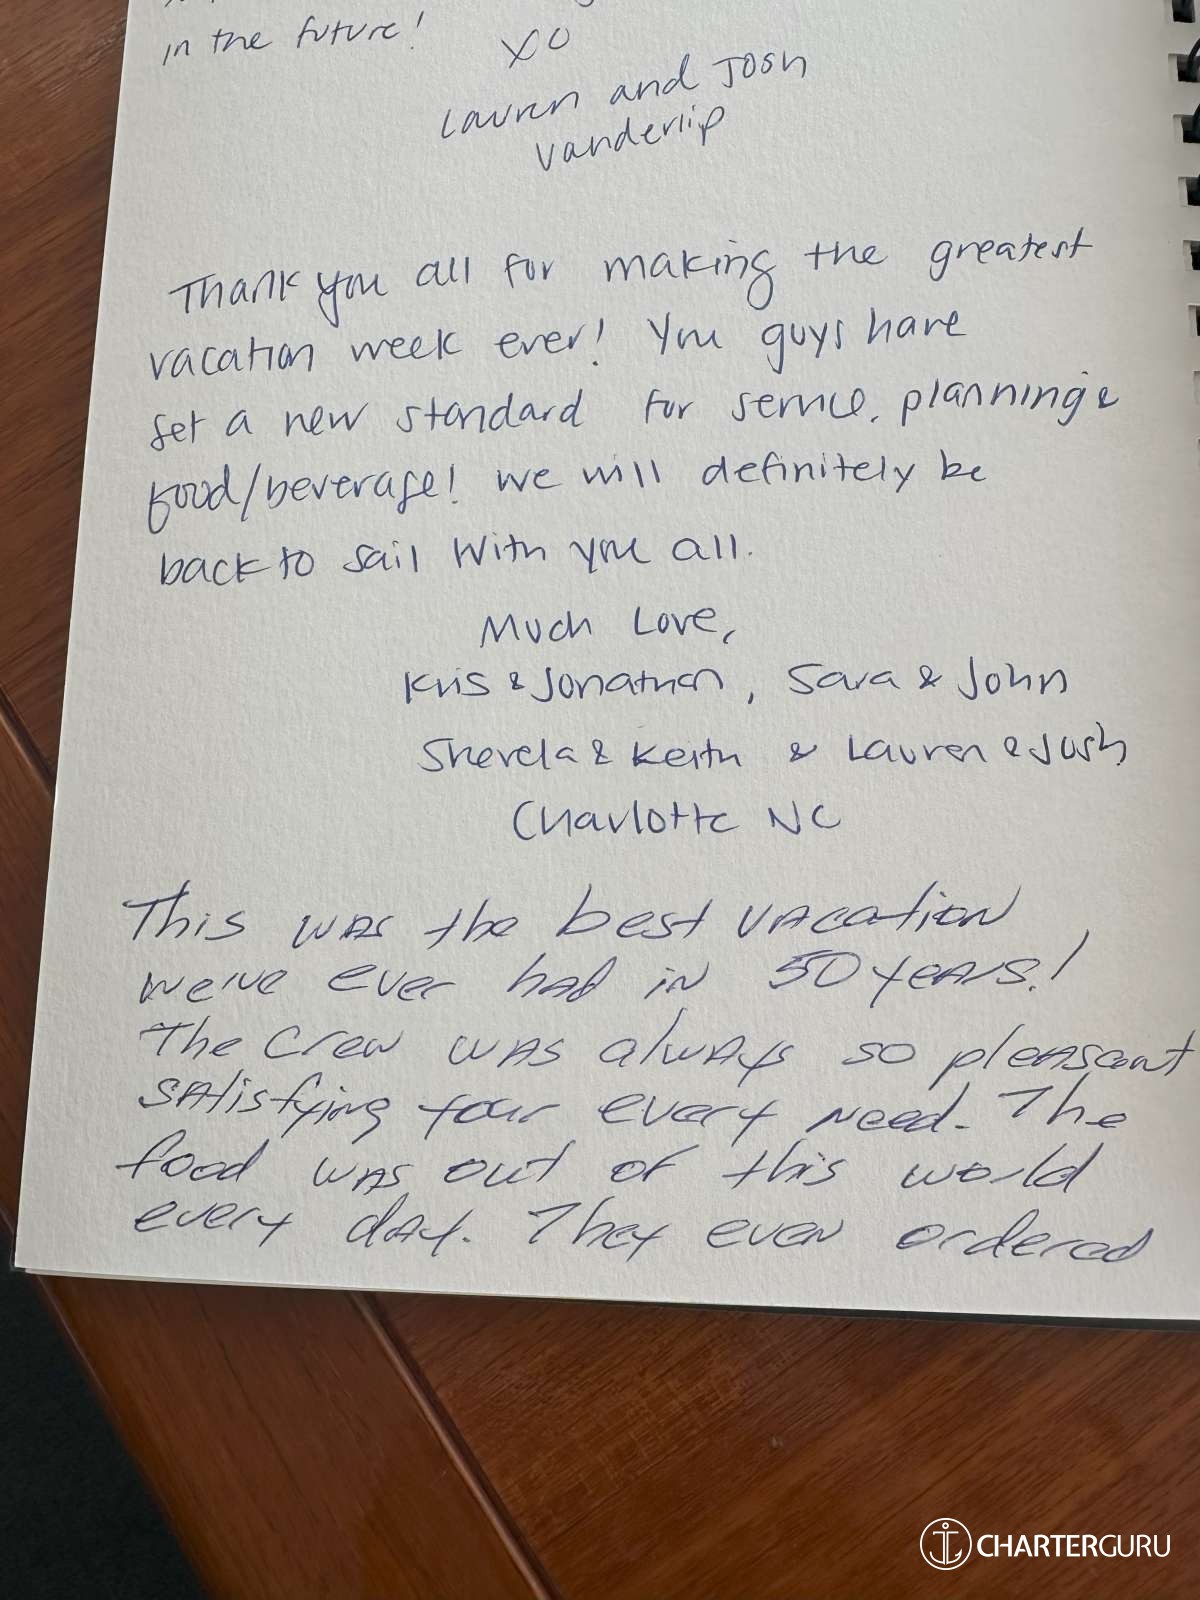 in the future!
XO
Lauren and Josh
Vanderlip
Thank you all for making the greatest
vacation week ever! You guys have
set a new standard for service, planning &
food/beverage! We will definitely be
back to sail with you all.
Much Love,
Kris & Jonathan, Sara & John
Sherela & Keith & Lauren & Josh
Charlotte NC
This was the best vacation
we've ever had in 50 years!
The Crew was always so pleasant
satisfying four every need. The
food was out of this world
every day. They even ordered
CHARTERGURU